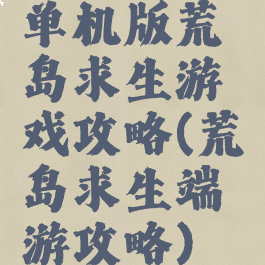 单机版荒
岛求生游
戏攻略(荒
岛求生端
游攻略)